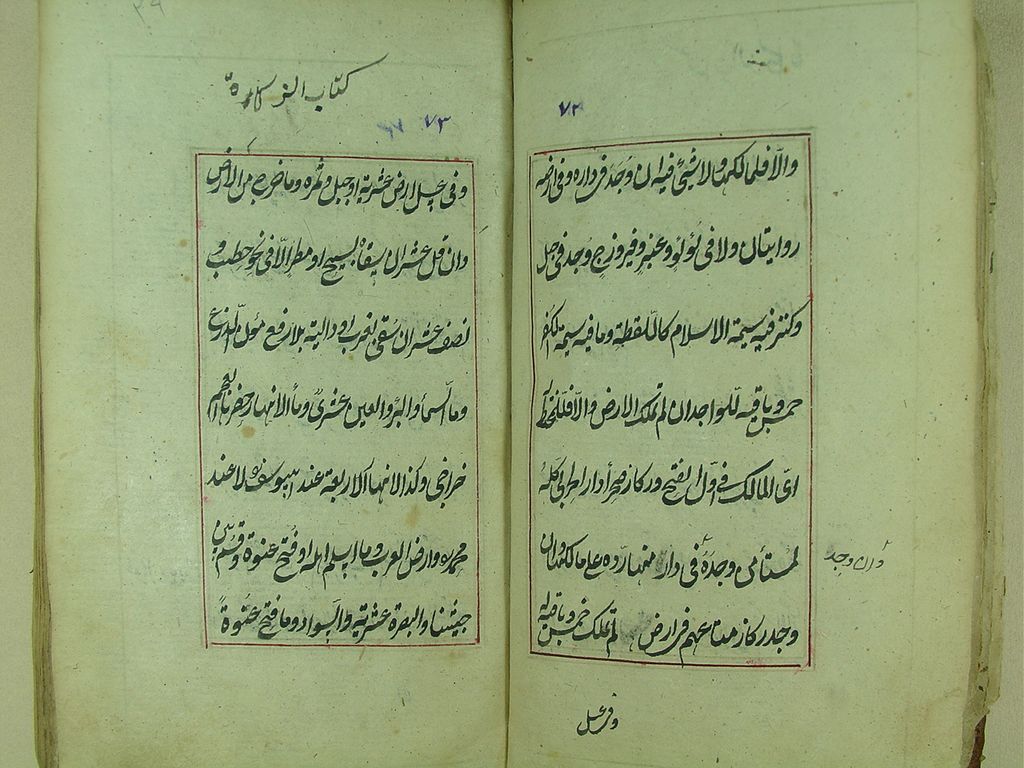 ٧٢
والّا فلمالكها ولا شيئ فيه ان وجد في داره وفي ارضه
روايتان ولا في لؤلؤ وعنبر وفيروزج وجد في جبل
وكنز فيه سمة الاسلام كاللقطة وما فيه سمة الكفر
خمس وباقيه للواجد ان لم تملك الارض والّا فللمختط له
اى المالك في اوّل الفتح وركاز صحرأ دار الحرب كله
لمستأمن وجده وفي دار منها ردّه على مالكها وان
وان وجد
وجد ركاز متاعهم في ارض لم تملك خمس وباقيه له
وفي عسل
كتاب الزكاة
٧٣
وفي عسل ارض عشرية او جبل وثمره وما خرج من الارض
وان قل عشر ان سقاه سيح او مطر الّا في نحو حطب و
نصف عشر ان سقى بغرب او دالية بلا رفع مؤن الزرع
وماء السماء والبئر والعين عشرىّ وماء الانهار حفرها العجم
خراجى وكذا الانهار الاربعة عند ابى يوسف لا عند
محمد وارض العرب وما اسلم اهله او فتح عنوة وقسم بين
جيشنا والبصرة عشرية والسواد وما فتح عنوةً